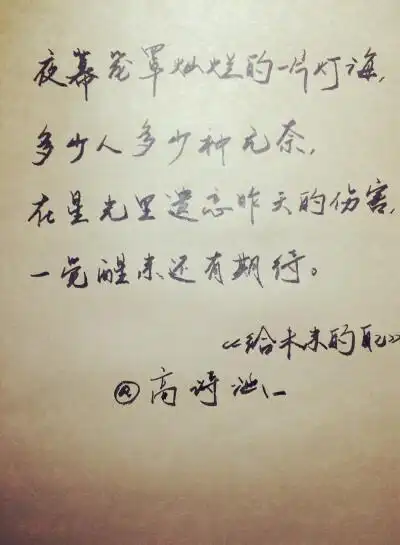 夜幕笼罩灿烂的一片灯海,
多少人多少种无奈,
在星光里遗忘昨天的伤害,
一觉醒来还有期待。
《给未来的自己》
@高诗